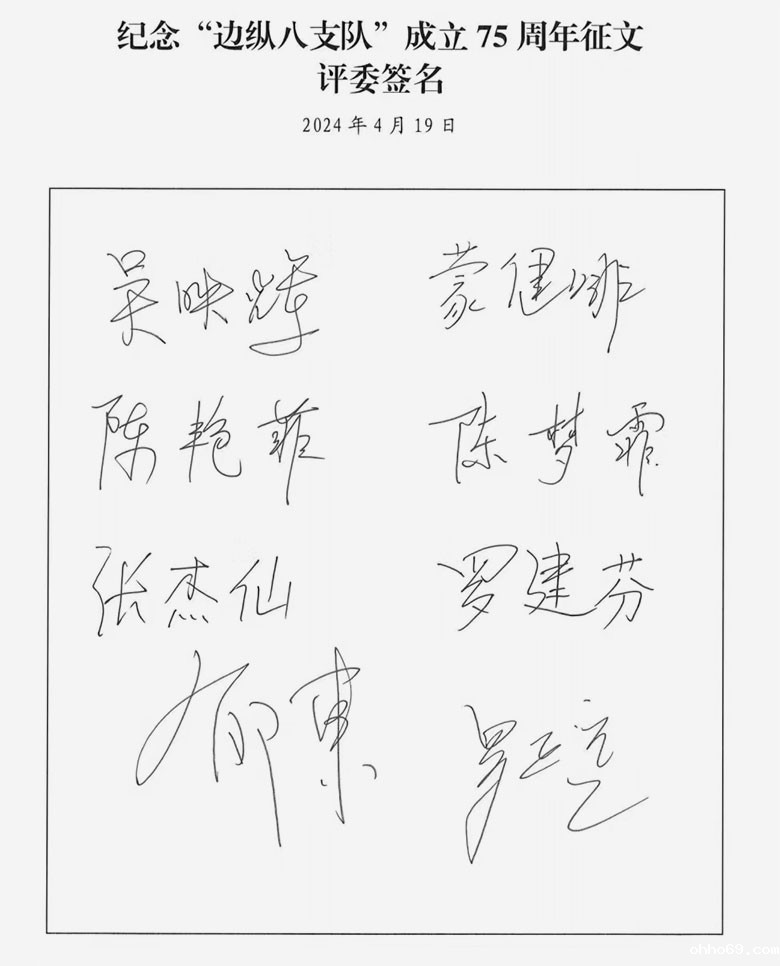 纪念“边纵八支队”成立 75 周年征文
评委签名
2024 年 4 月 19 日
吴映辉 蒙健啡
陈艳菲 陈梦霏
张杰仙 罗建芬
郁東
ohho69.com